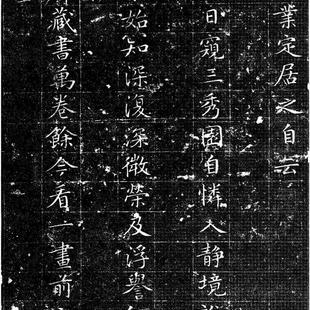 業定居之自云
日窺三秀園自憐入靜境
始知深復深微榮及浮譽
藏書萬卷餘今看一畫前